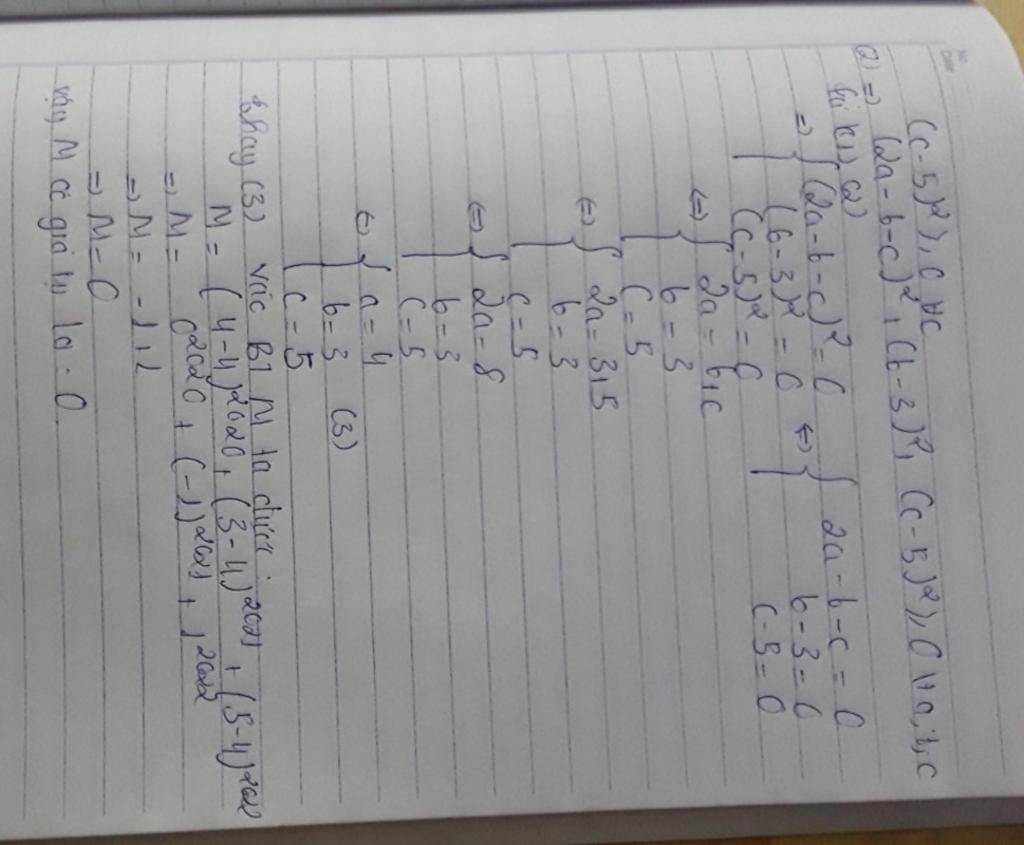 (c-5)² ≥ 0 ∀c
(2) => (2a-b-c)² + (b-3)² + (c-5)² ≥ 0 ∀a,b,c
từ (1) (2)
=> { (2a-b-c)² = 0 <=> { 2a-b-c = 0
(b-3)² = 0 b-3 = 0
(c-5)² = 0 c-5 = 0
<=> { 2a = b+c
b = 3
c = 5
<=> { 2a = 3+5
b = 3
c = 5
<=> { 2a = 8
b = 3
c = 5
<=> { a = 4
b = 3 (3)
c = 5
thay (3) vào BT M ta được:
M = (4-4)²⁰²⁰ + (3-4)²⁰²¹ + (5-4)²⁰²²
=> M = 0²⁰²⁰ + (-1)²⁰²¹ + 1²⁰²²
=> M = -1+1
=> M = 0
vậy M có giá trị là: 0